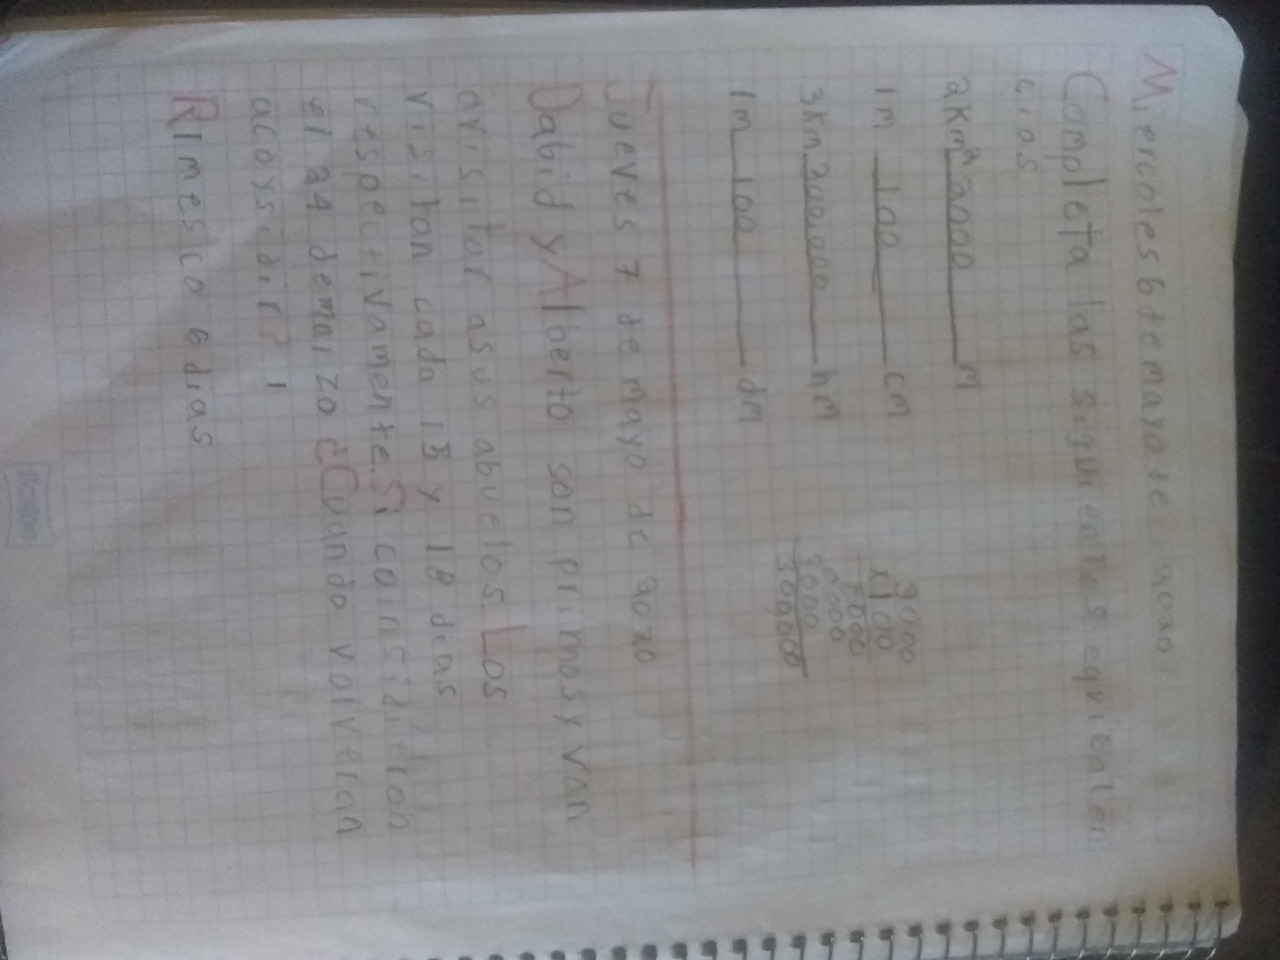 Miercoles 6 de mayo de 2020
Completa las siguientes equibalen
cias
2km 2000 m
1m 100 cm
3km 300,000 hm
1m 100 dm
3000
x100
0000
0000
3000
300,000
Jueves 7 de mayo de 2020
Dabid y Alberto son primos y van
avisitar asus abuelos. Los
visitan cada 15 y 18 dias
respectivamente. Si coinsidieron
el 24 demarzo ¿Cuando volveran
acoxsidir?
R1mesco 6 dias